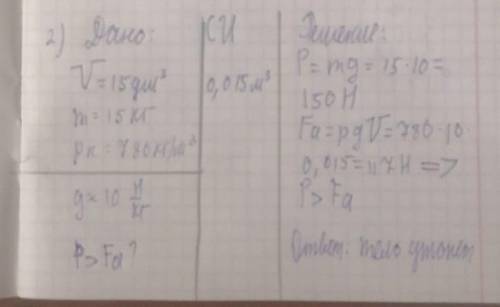 2) Дано:
V=15дм³
m=15 кг
ρк=780кг/м³
g=10 Н/кг
P>Fa?
СИ
0,015м³
Решение:
P=mg=15·10=
150Н
Fa=ρgV=780·10·
0,015=117Н =>
P>Fa
Ответ: тело утонет